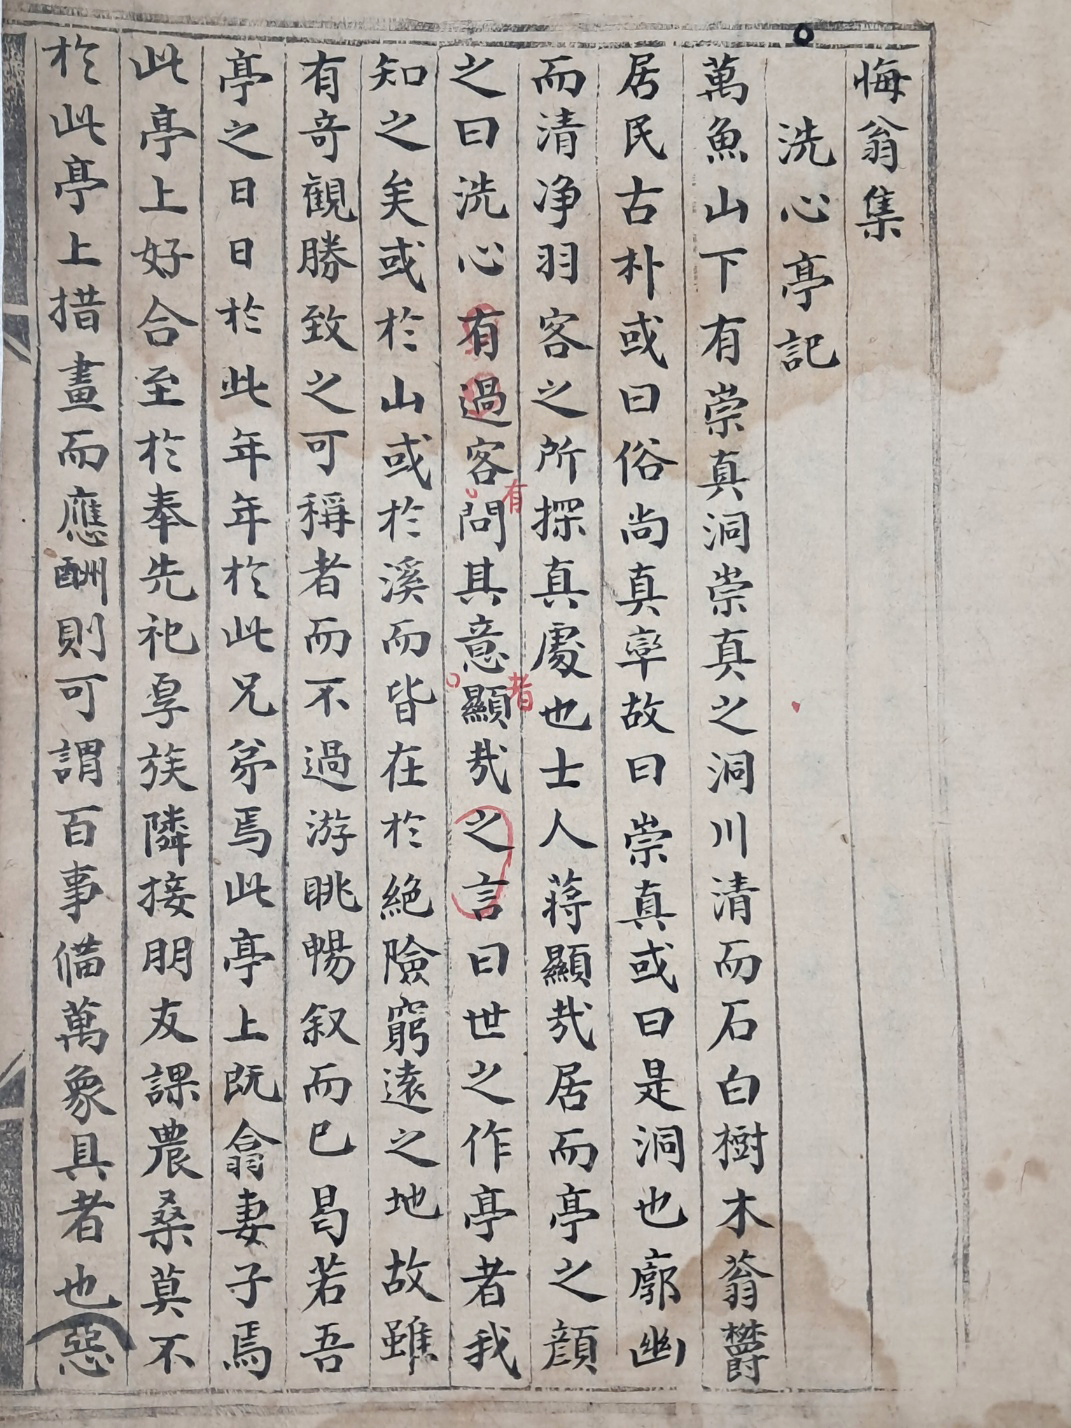 悔翁集
洗心亭記
萬魚山下有崇真洞崇真之洞川清而石白樹木蓊鬱
居民古朴或曰俗尚真率故曰崇真或曰是洞也廓幽
而清净羽客之所探真處也士人蔣顯㦲居而亭之顔
之曰洗心有過客問其意顯㦲之言曰世之作亭者我
有
者
知之矣或於山或於溪而皆在於絶險窮遠之地故雖
有竒觀勝致之可稱者而不過游眺暢叙而已曷若吾
亭之日日於此年年於此兄弟焉此亭上既翕妻子焉
此亭上好合至於奉先祀㫗族隣接朋友課農桑莫不
於此亭上措畫而應酬則可謂百事備萬象具者也惡